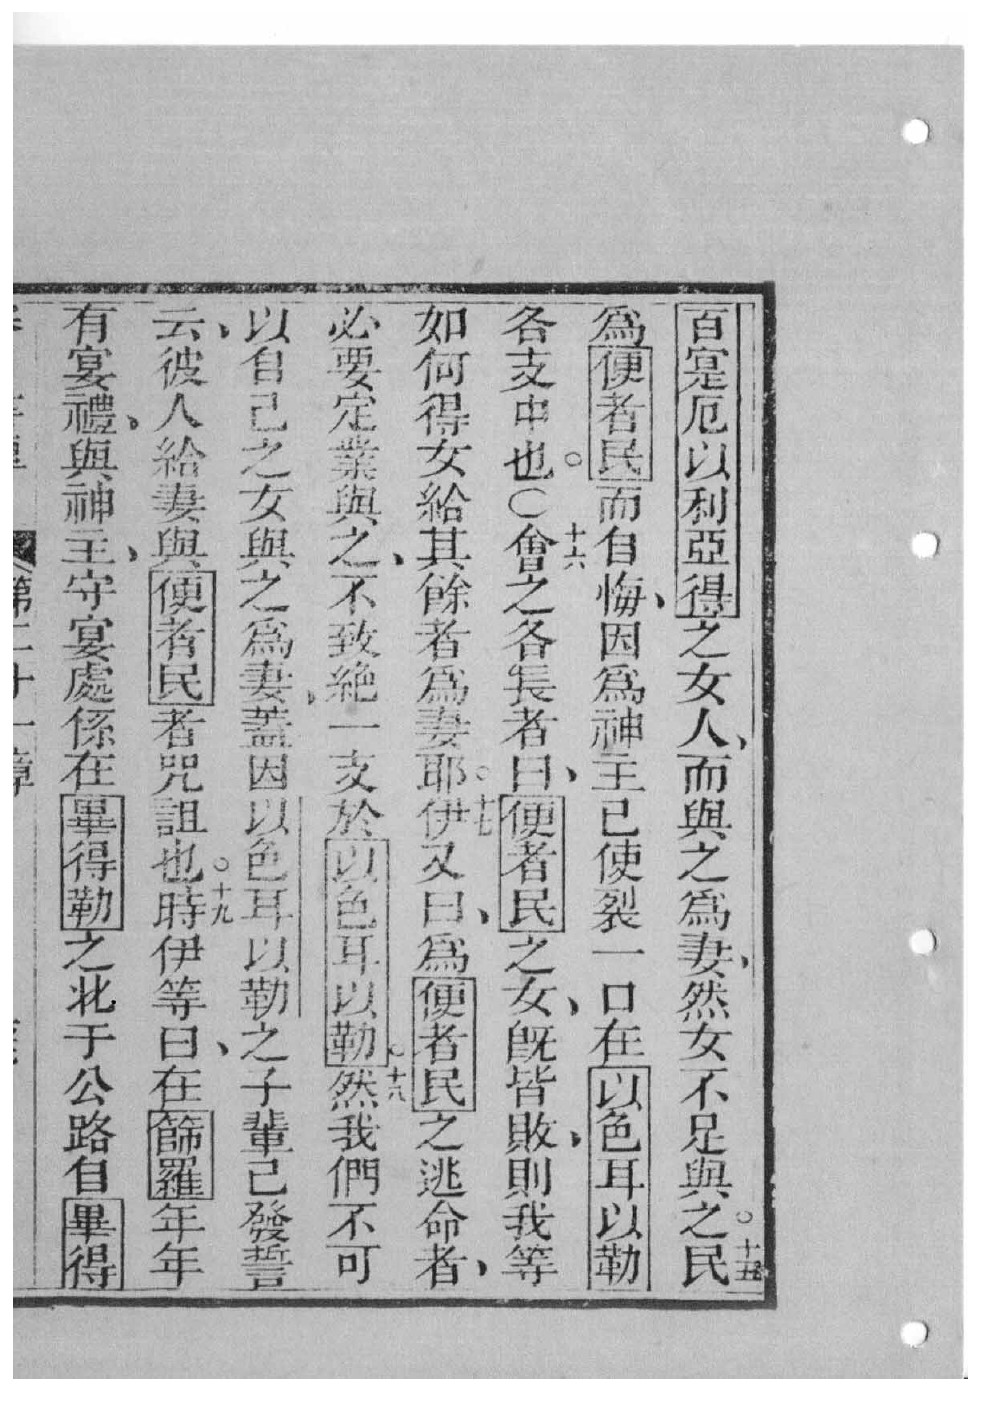 百寔厄以利亞得之女人、而與之爲妻、然女不足與之。十五民
爲便者民而自悔、因爲神主已使裂一口在以色耳以勒
各支中也。〇十六會之各長者曰、便者民之女、旣皆敗、則我等
如何得女給其餘者爲妻耶。十七伊又曰、爲便者民之逃命者、
必要定業與之、不致絶一支於以色耳以勒。十八然我們不可
以自己之女與之爲妻、蓋因以色耳以勒之子輩己發誓
云、彼人給妻與便者民者咒詛也。十九時伊等曰、在篩羅年年
有宴禮、與神主、守宴處係在畢得勒之北于公路自畢得
第二十一章